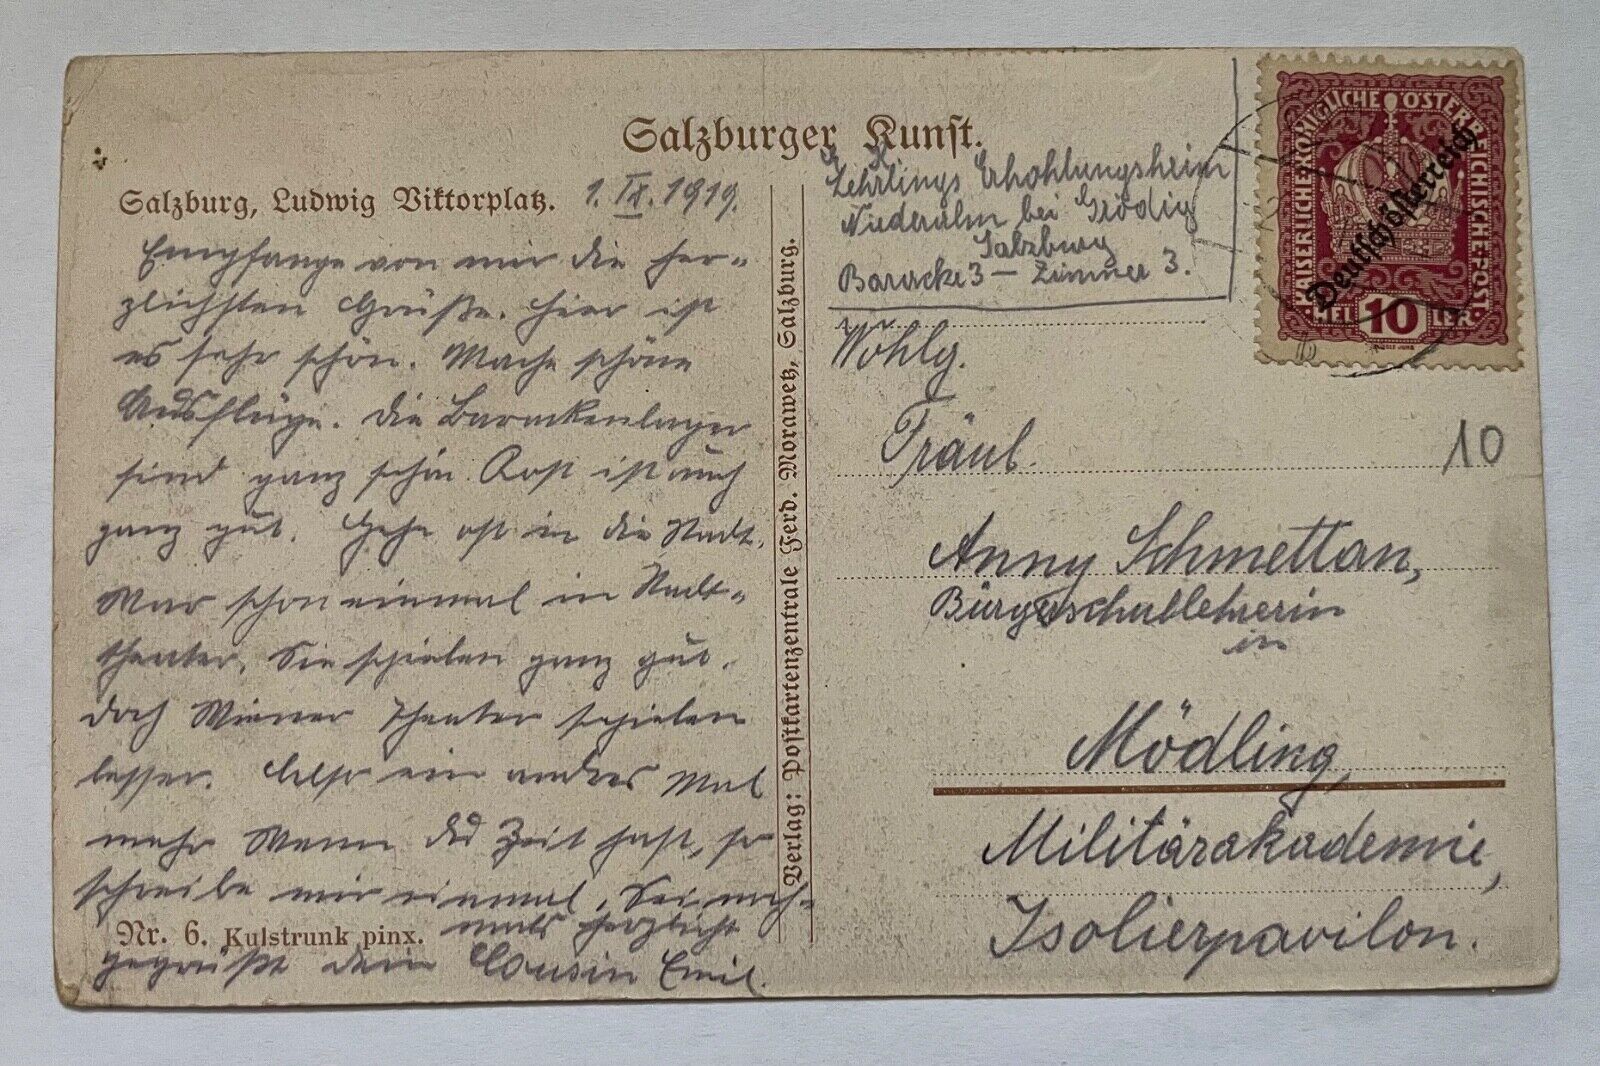 Salzburger Kunst.
Salzburg, Ludwig Viktorplatz.
1. IX. 1919.
Empfange von mir die her-
zlichsten Grüße. Hier ist
es sehr schön. Mache schöne
Ausflüge. Die Barackenlager
sind ganz schön. Kost ist auch
ganz gut. Gehe oft in die Stadt.
War schon einmal in Stadt-
theater. Sie spielen ganz gut.
doch Wiener Theater spielen
besser. Also ein andres Mal
mehr Wenn Du Zeit hast, so
schreibe mir einmal. Sei noch-
mals herzlichst
gegrüßt dein Cousin Emil.
Nr. 6. Kulstrunk pinx.
Verlag: Postkartenzentrale Ferd. Morawetz, Salzburg.
Lehrlings Erhohlungsheim
Niederalm bei Grödig
Salzburg
Baracke 3 – Zimmer 3.
Wohlg.
Fräul.
Anny Schmettan,
Bürgerschullehrerin
in
Mödling,
Militärakademie,
Isolierpavilon.
10
KAISERLICH·KÖNIGLICHE ÖSTERREICHISCHE·POST
Deutschösterreich
HELLER 10